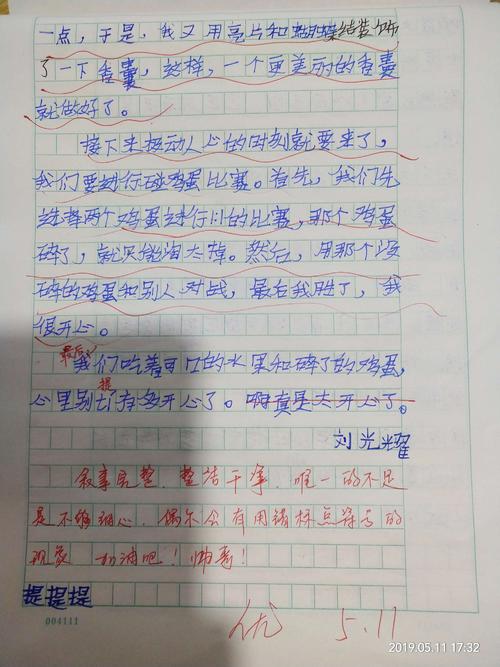 一点，于是，我又用亮片和蝴蝶结装饰
了一下香囊，这样，一个更美丽的香囊
就做好了。
接下来极动人心的时刻就要来了，
我们要进行碰鸡蛋比赛。首先，我们先
选择两个鸡蛋进行比的比赛，那个鸡蛋
碎了，就只能淘太掉。然后，用那个没
碎的鸡蛋和别人对战，最后我胜了，我
很开心。
最后，
我们吃着可口的水果和碎了的鸡蛋，
提
心里别有多开心了。啊真是太开心了。
刘光耀
叙事完整，整洁干净，唯一的不足
是不够细心，偶尔会有用错标点符号的
现象 加油吧！帅哥！
提提提
004111
优 5.11
2019.05.11 17:32